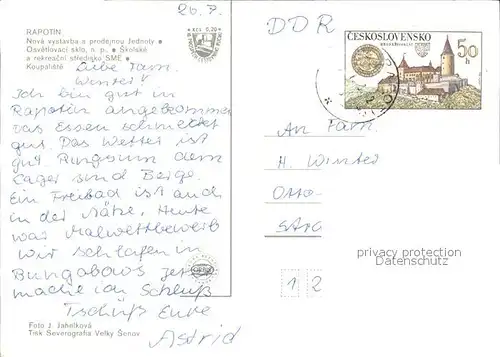 20.7.
RAPOTÍN
Nová výstavba s prodejnou Jednoty ●
Osvětlovací sklo, n. p. ● Školské
a rekreační středisko SME ●
Koupaliště
Kčs 0,20
Liebe Fam.
Winter!
Ich bin gut in
Rapotin angekommen
Das Essen schmeckt
gut. Das Wetter ist
gut. Rungsum dem
Lager sind Berge.
Ein Freibad ist auch
in der Nähe. Heute
war Malwettbewerb
Wir schlafen in
Bungabows Jetz
mache ich Schluß
Tschüß Eure
Astrid
Foto J. Jahelková
Tisk Severografia Velký Šenov
DDR
ČESKOSLOVENSKO
50 h
An Fam.
H. Winter
Otto-
privacy protection
Datenschutz
1 2